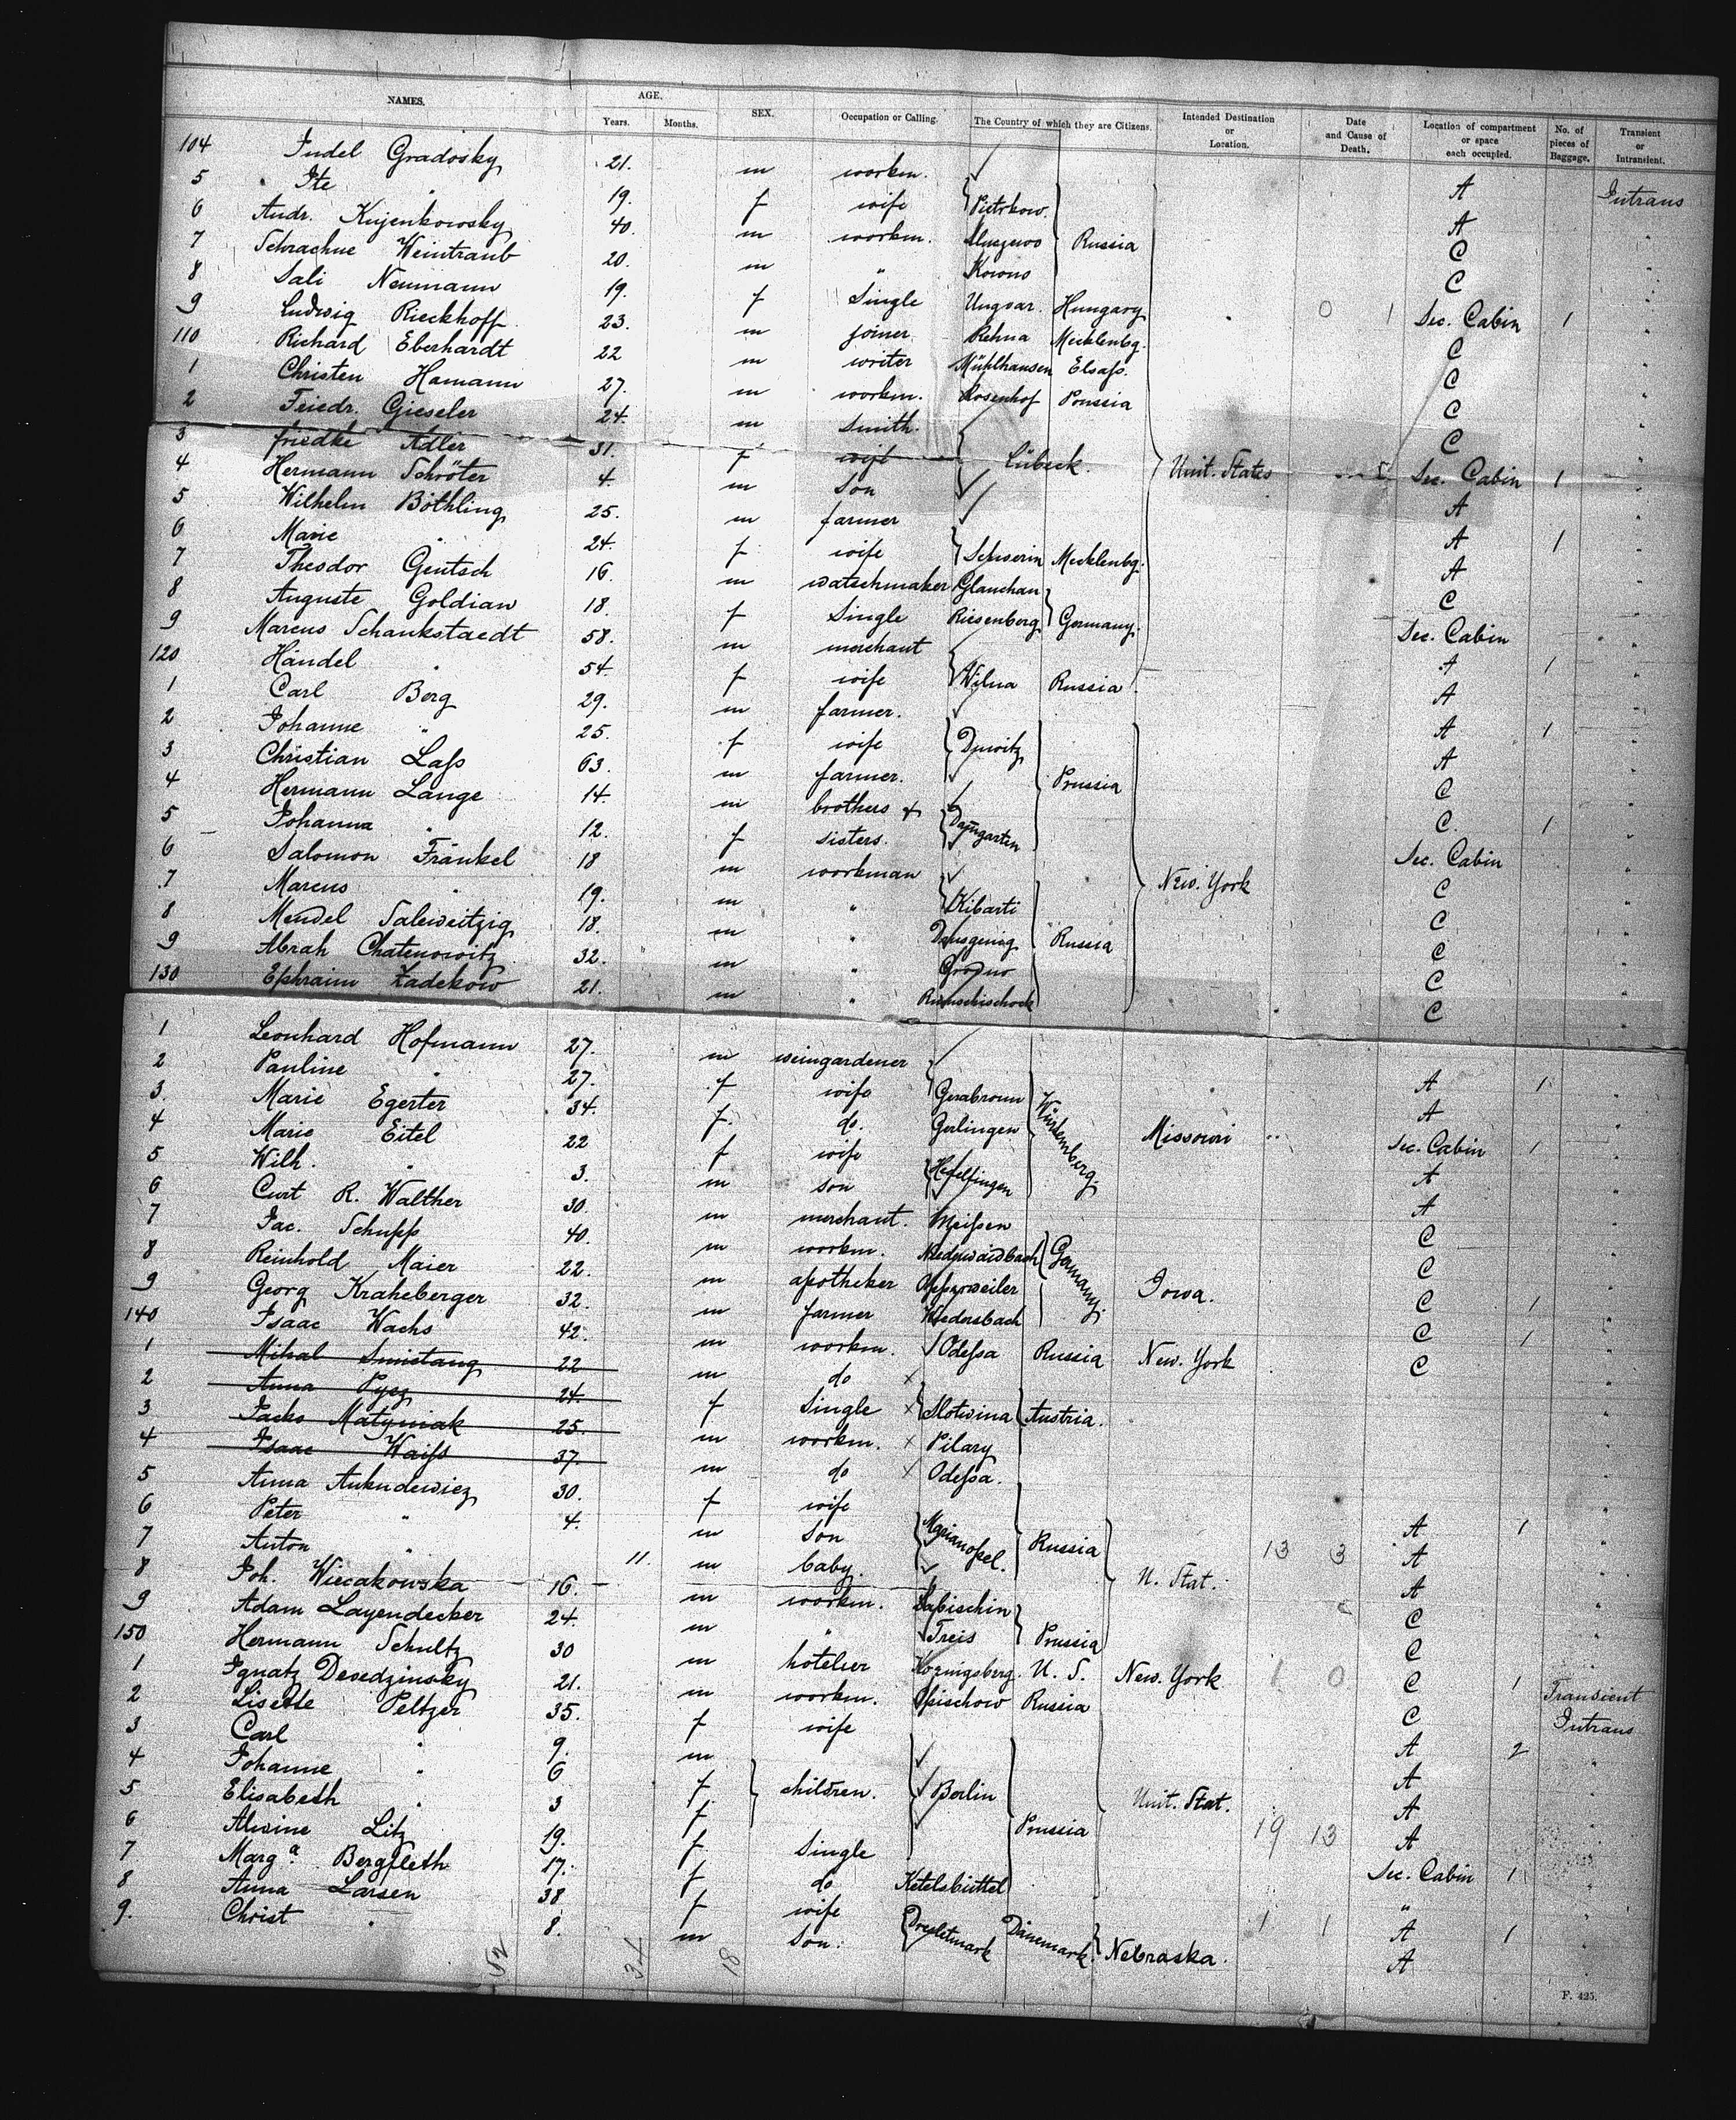 NAMES. AGE. Years. Months. SEX. Occupation or Calling. The Country of which they are Citizens. Intended Destination or Location. Date and Cause of Death. Location of compartment or space each occupied. No. of pieces of Baggage. Transient or Intransient.
104 Judel Gradosky 21. m workm. A Intrans
5 Ite " 19. f wife Pietrkow. A "
6 Andr. Kujenkowsky 40. m workm. Russia C "
7 Schrachne Weintraub 20. m " Kowno C "
8 Sali Neumann 19. f Single Ungvar. Hungary 0 1 Sec. Cabin 1 "
9 Ludwig Rieckhoff 23. m joiner Rehna Mecklenbg. C "
110 Richard Eberhardt 22 m writer Mühlhausen Elsaß. C "
1 Christen Hamann 27. m workm. Rosenhof Prussia C "
2 Friedr. Gieseler 24. m Smith. C "
3 friedke Adler 31. f wife Lübeck. Unit. States Sec. Cabin 1 "
4 Hermann Schröter 4. m Son A "
5 Wilhelm Böthling 25. m farmer A 1 "
6 Marie " 24. f wife Schwerin Mecklenbg. A "
7 Theodor Gentsch 16. m watschmaker Glauchau C "
8 Auguste Goldian 18. f Single Riesenberg Germany. Sec. Cabin "
9 Marcus Schankstaedt 58. m merchant A 1 "
120 Händel " 54. f wife Wilna Russia A "
1 Carl Berg 29. m farmer. A 1 "
2 Johanne " 25. f wife A "
3 Christian Laß 63. m farmer. Prussia C "
4 Hermann Lange 14. m brothers & C. 1 "
5 Johanna " 12. f sisters. Damgarten Sec. Cabin "
6 Salomon Fränkel 18 m workman New. York C "
7 Marcus " 19. m " Kibarti C "
8 Mendel Saleweitzig 18. m " Russia C "
9 Abrah Chatenowitz 32. m " Grodno C "
130 Ephraim Zadekow 21. m " C "
1 Leonhard Hofmann 27. m weingardener A 1 "
2 Pauline " 27. f wife Gerabronn Würtemberg. A "
3. Marie Egerter 34. f. do. Gerlingen Missouri Sec. Cabin 1 "
4 Marie Eitel 22 f wife A "
5 Wilh. " 3. m son A "
6 Curt R. Walther 30. m merchant. Meißen C "
7 Jac. Schupp 40. m workm. Germany. C "
8 Reinhold Maier 22. m apotheker Iowa. C 1 "
9 Georg Kraheberger 32. m farmer Wiedersbach C 1 "
140 Isaac Wachs 42. m workm. Odeßa Russia New. York C "
1 Mihal Smistang 22 m do x "
2 Anna Pyez 24. f Single x Slotwina Austria. "
3 Jacko Matyniak 25. m workm. x Pilary "
4 Isaac Waiß 37. m do x Odeßa. "
5 Anna Aukudewicz 30. f wife A 1 "
6 Peter " 4. m Son Marianopel. Russia 13 3 A "
7 Anton " 11. m baby. U. Stat. A "
8 Joh. Wiecakowska 16. m workm. Labischin C "
9 Adam Layendecker 24. m " Treis Prussia C "
150 Hermann Schultz 30 m hotelier U. S. New. York 1 0 C 1 Transient
1 Ignatz Desedzinsky 21. m workm. Russia C Intrans
2 Lisette Peltzer 35. f wife A 2 "
3 Carl " 9. m A "
4 Johanne " 6 f children. Berlin Unit. Stat. A "
5 Elisabeth " 3 f Prussia 19 13 A "
6 Alwine Litz 19. f Single Sec. Cabin 1 "
7 Marg.a Bergfleth 17. f do Ketelsbüttel " "
8 Anna Larsen 38 f wife Dänemark. 1 1 A 1 "
9. Christ " 8. m Son. Nebraska. A
52 34 18
F. 425.